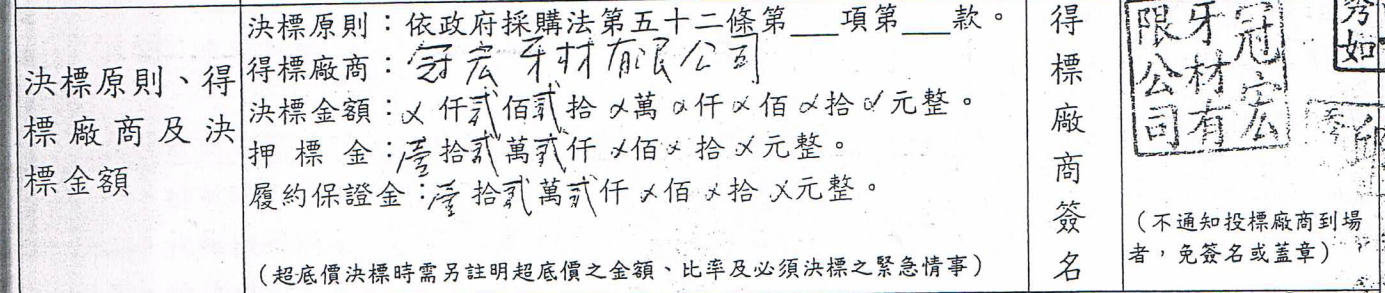 決標原則、得
標廠商及決
標金額
決標原則：依政府採購法第五十二條第___項第___款。
得標廠商：冠宏牙材有限公司
決標金額：ㄨ仟貳佰貳拾ㄨ萬ㄨ仟ㄨ佰ㄨ拾ㄨ元整。
押標金：壹拾貳萬貳仟ㄨ佰ㄨ拾ㄨ元整。
履約保證金：壹拾貳萬貳仟ㄨ佰ㄨ拾ㄨ元整。
（超底價決標時需另註明超底價之金額、比率及必須決標之緊急情事）
得標廠商簽名
冠宏
牙材有
限公司
秀如
（不通知投標廠商到場
者，免簽名或蓋章）